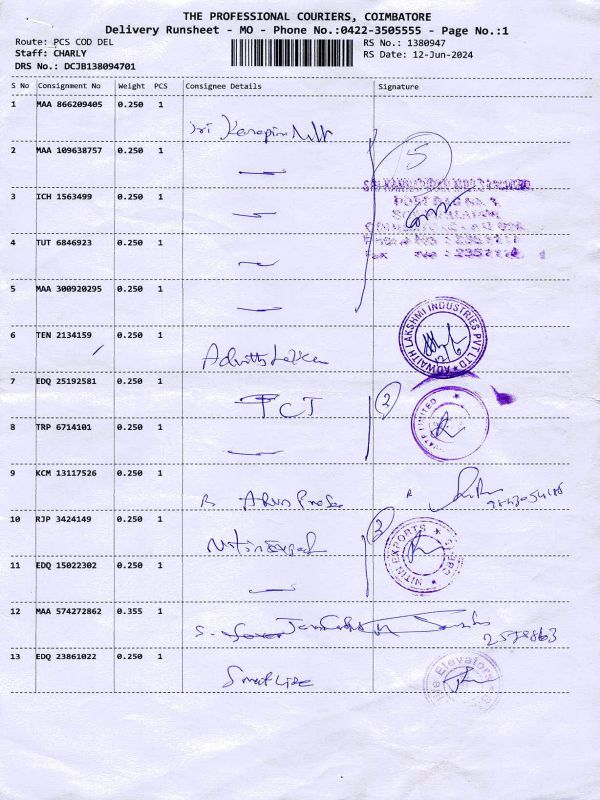 THE PROFESSIONAL COURIERS, COIMBATORE
Delivery Runsheet - MO - Phone No.:0422-3505555 - Page No.:1
Route: PCS COD DEL RS No.: 1380947
Staff: CHARLY RS Date: 12-Jun-2024
DRS No.: DCJB138094701
S No Consignment No Weight PCS Consignee Details Signature
1 MAA 866209405 0.250 1
Sri
2 MAA 109638757 0.250 1
5
3 ICH 1563499 0.250 1
4 TUT 6846923 0.250 1
5 MAA 300920295 0.250 1
ADWAITH LAKSHMI INDUSTRIES PVT LTD
6 TEN 2134159 0.250 1
7 EDQ 25192581 0.250 1
PCT 2
8 TRP 6714101 0.250 1
9 KCM 13117526 0.250 1
10 RJP 3424149 0.250 1
Nitin 2
NITIN EXPORTS
11 EDQ 15022302 0.250 1
12 MAA 574272862 0.355 1
13 EDQ 23861022 0.250 1
Smart Life
Life Elevators